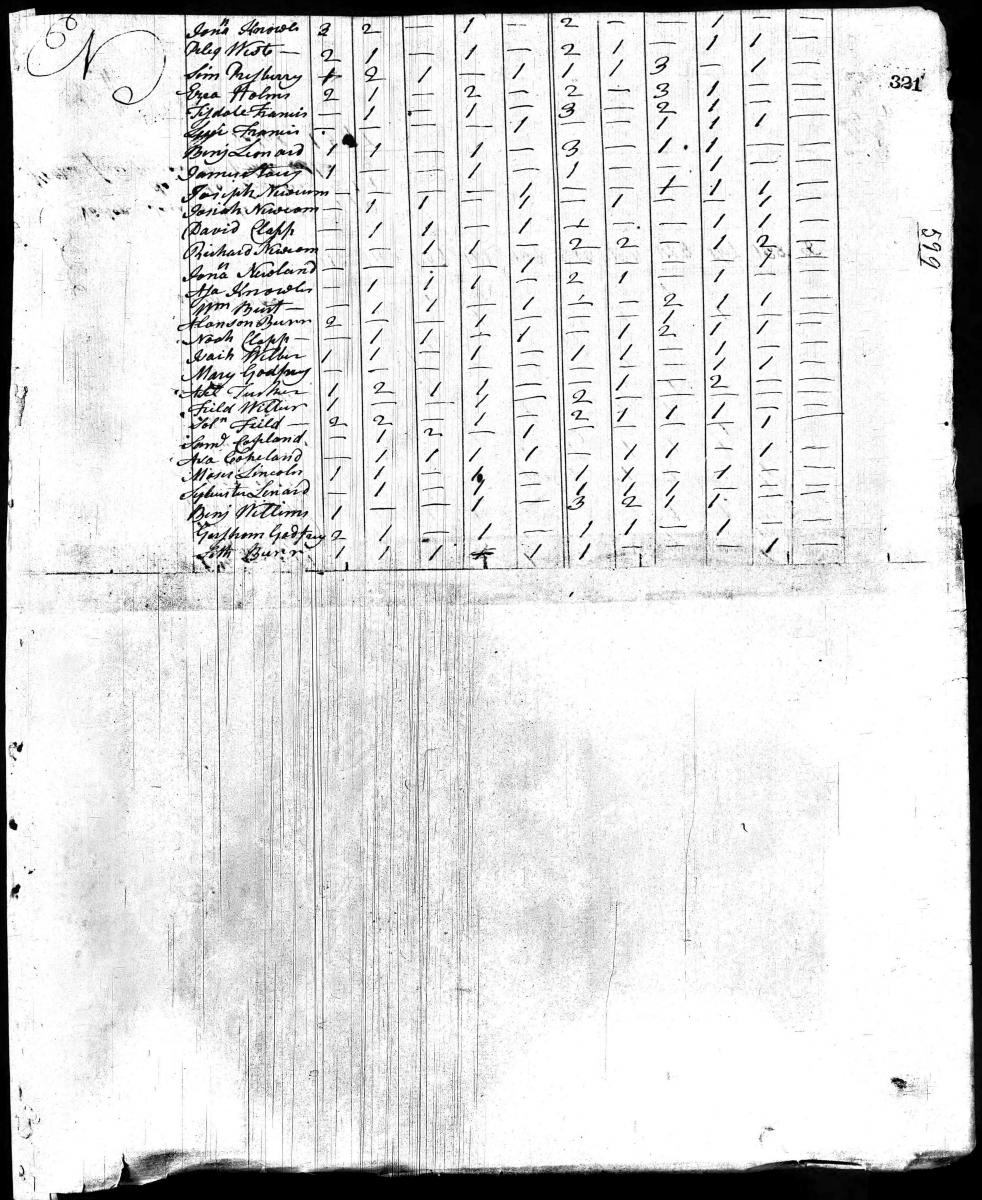 N
321
599
Jonᵃ Knowls 2 2 — 1 — 2 — — 1 — —
Peleg West — 2 1 — 1 — 2 1 — 1 1 —
Sim Presberry 1 2 1 — 1 1 1 3 — 1 —
Ezra Holms 2 1 — 2 — 2 — 3 1 — —
Tisdale Francis — 1 — 1 — 3 — 2 1 — —
Francis — — — — 1 — — 1 1 1 —
Benj Leonard 1 1 — 1 — 3 — 1 1 — —
James 1 — — 1 — 1 — — 1 — —
Joseph Newcom — — — — 1 — — 1 1 1 —
Josiah Newcom — 1 1 — 1 — 1 — — 1 —
David Clapp — 1 1 — 1 1 — — 1 1 —
Richard Newcom — — 1 1 — 2 2 — 1 2 —
Jonᵃ Newland — — — — 1 — — — — 1 —
Asa Knowles — 1 1 1 — 2 1 — 1 — —
Wm Burt — — 1 1 — 1 1 — 2 1 1 —
Alanson Burr 2 — — 1 — — — 1 — — —
Noah Clapp — — 1 — 1 1 — 1 2 1 1 —
Isaih Wilber 1 1 — 1 — 1 1 — 1 — —
Mary Godfrey — — — — — — — — 1 — —
Abel Tucker 1 2 1 1 — — 1 — 2 — —
Field Wilbur 1 — — 1 — 2 — — — — —
Solⁿ Field — 2 2 — 1 — 2 1 1 1 — —
Samˡ Copland — 1 2 — 1 — — — — 1 —
Asa Copeland — 1 1 1 1 — 1 1 — 1 —
Moses Lincoln 1 1 — 1 — 1 1 — 1 — —
Sylvester Lenard — 1 — 1 — 1 1 1 — — —
Benj Willims 1 — — 1 — 3 2 1 1 — —
Gershom Godfrey 2 1 — 1 — 1 1 — 1 — —
Seth Burr 1 1 1 1 1 — — — 1 —